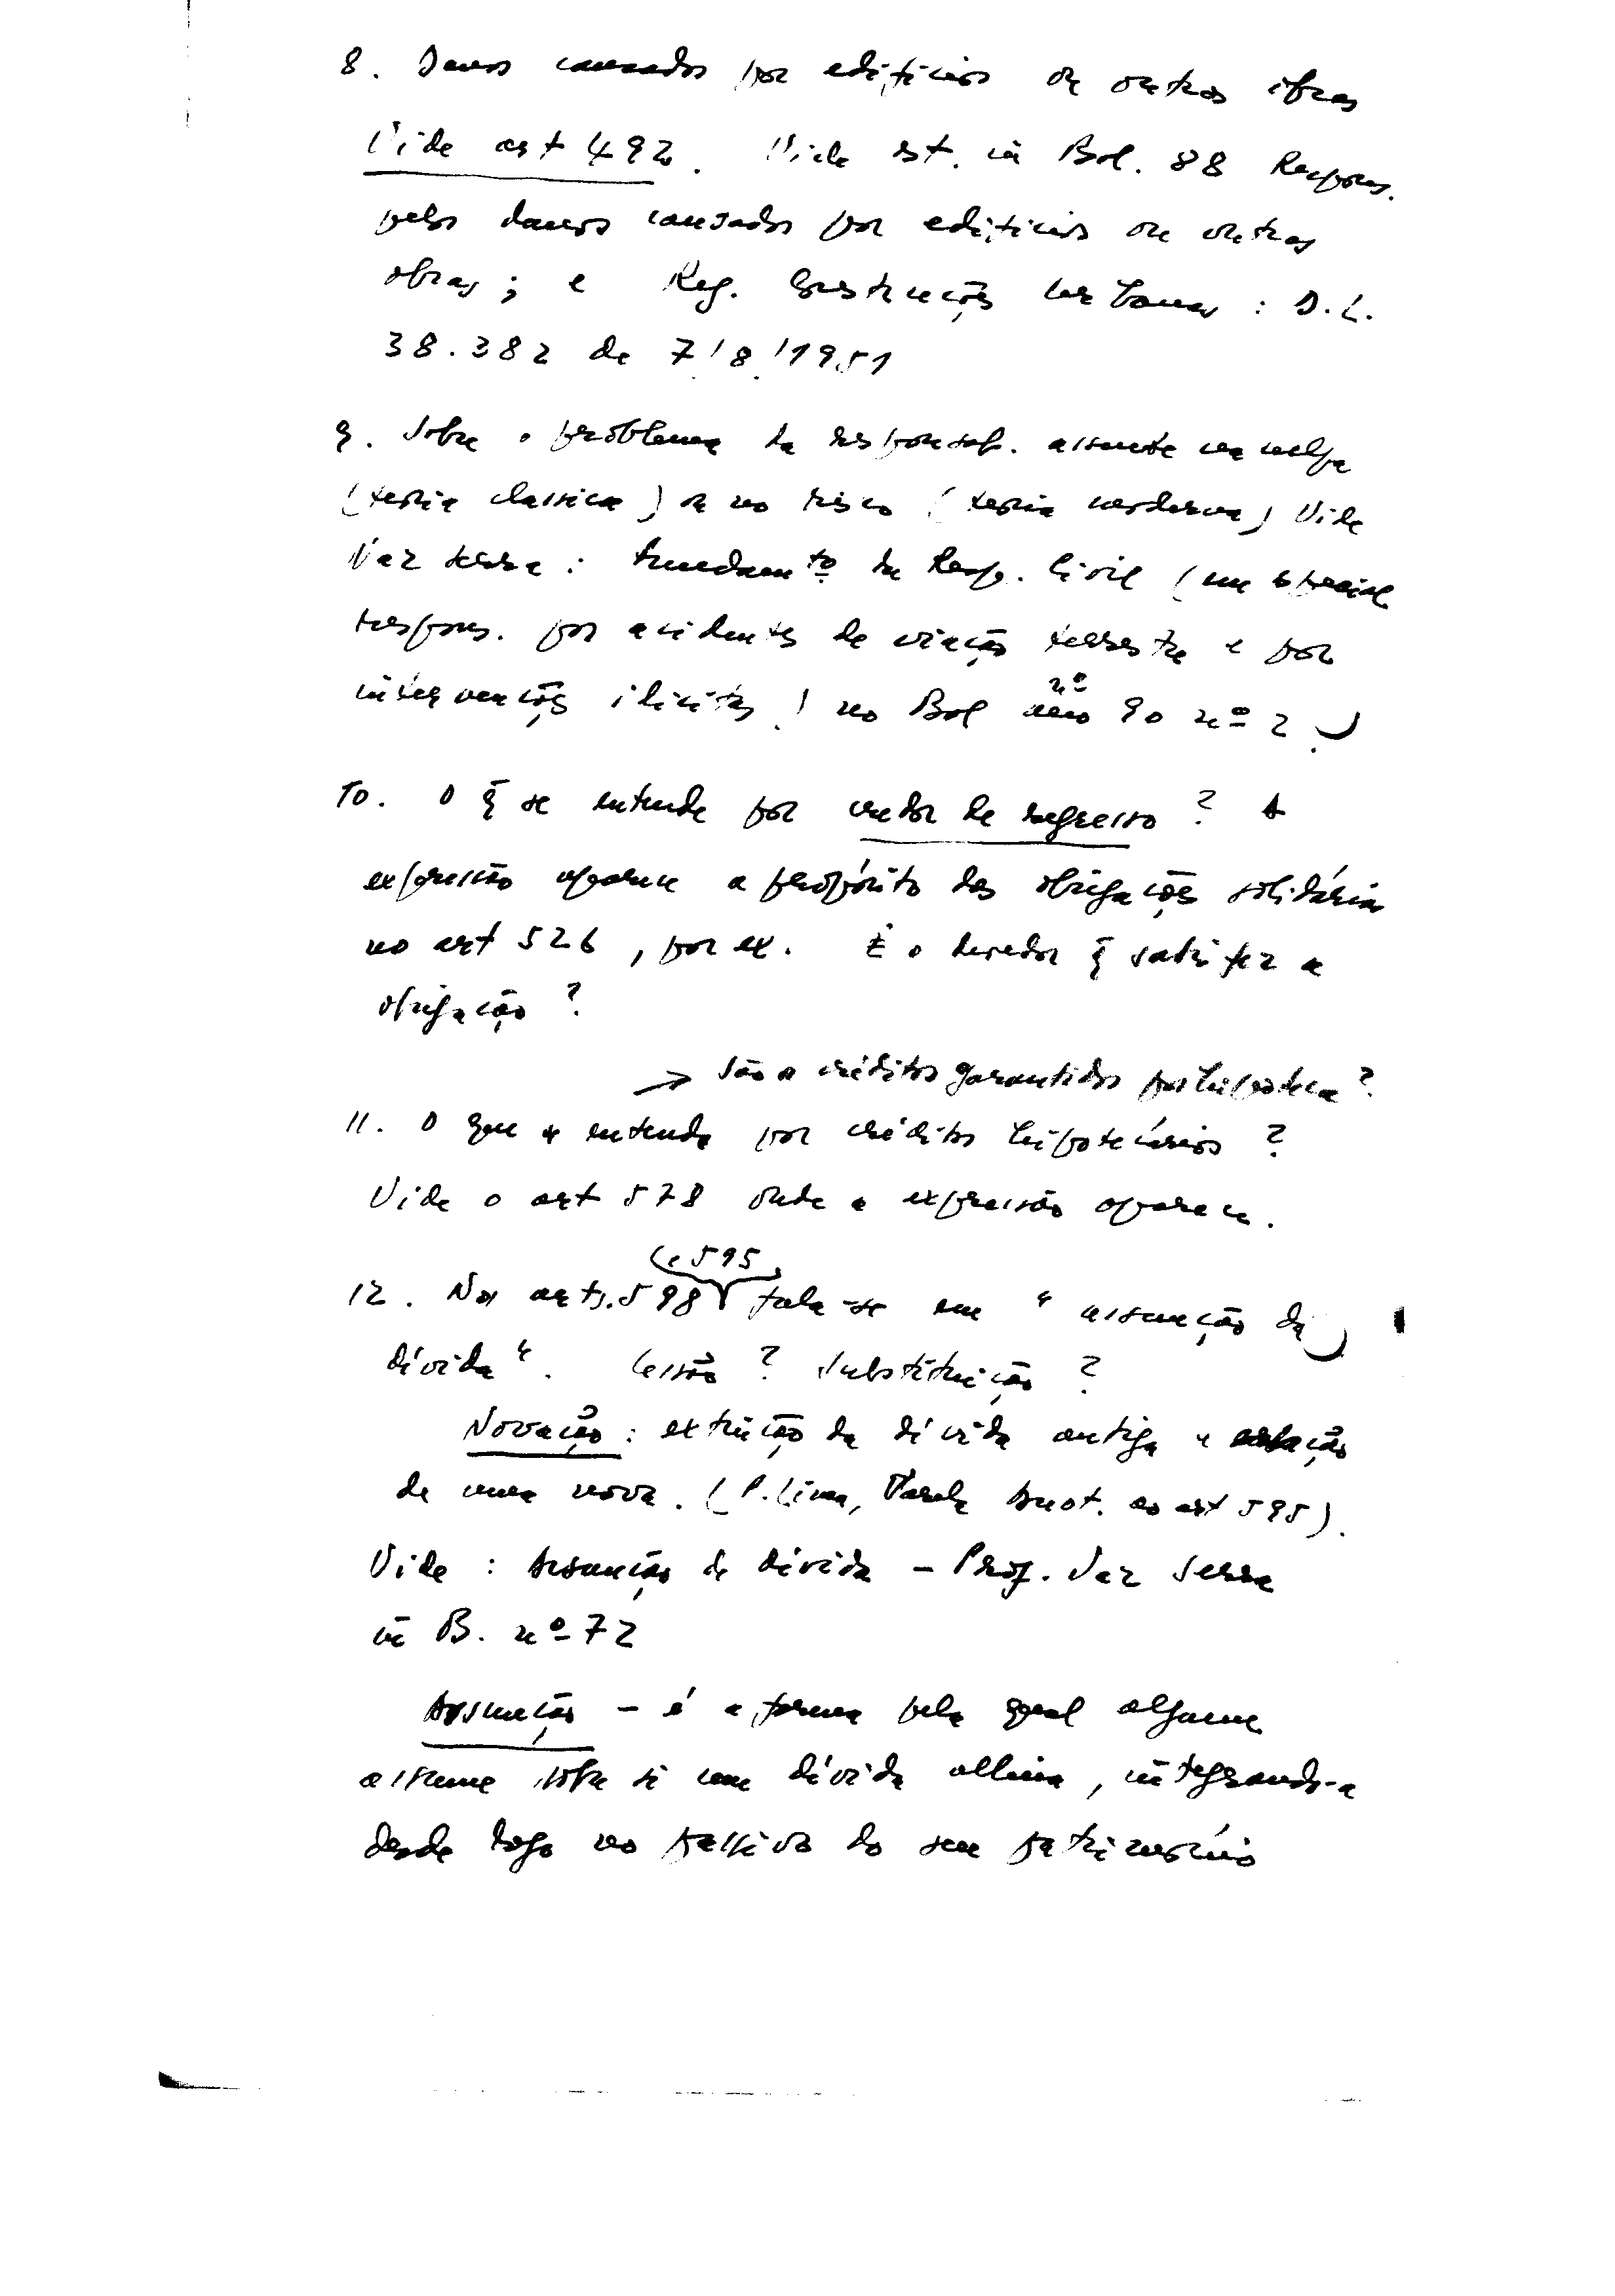 8. Danos causados por edifícios ou outras obras
Vide art 492. Vide est. in Bol. 88 Respons.
pelos danos causados por edifícios ou outras
obras; e Reg. Construções Urbanas: D.L.
38.382 de 7/8/1951
9. Sobre o problema da responsab. assente na culpa
(teoria classica) ou no risco (teoria moderna) Vide
Vaz Serra: Fundamentº da Resp. Civil (em especial
respons. por acidentes de viação terrestre e por
intervenções ilícitas! no Bol nº 90 nº 2)
10. O q̃ se entende por credor de regresso? A
expressão aparece a propósito das obrigações solidárias
no art 526, por ex. É o devedor q̃ satisfez a
obrigação?
→ São os créditos garantidos por hipoteca?
11. O que se entende por créditos hipotecários?
Vide o art 578 onde a expressão aparece.
(e 595)
12. Nos arts. 598 fala-se em "assunção da
dívida". Cessão? Substituição?
Novação: extinção da dívida antiga e criação
de uma nova. (P. Lima, Varela Anot. ao art 595).
Vide: Assunção de dívida - Prof. Vaz Serra
in B. nº 72
Assunção - é a forma pela qual alguem
assume sobre si uma dívida alheia, integrando-a
desde logo no passivo do seu património